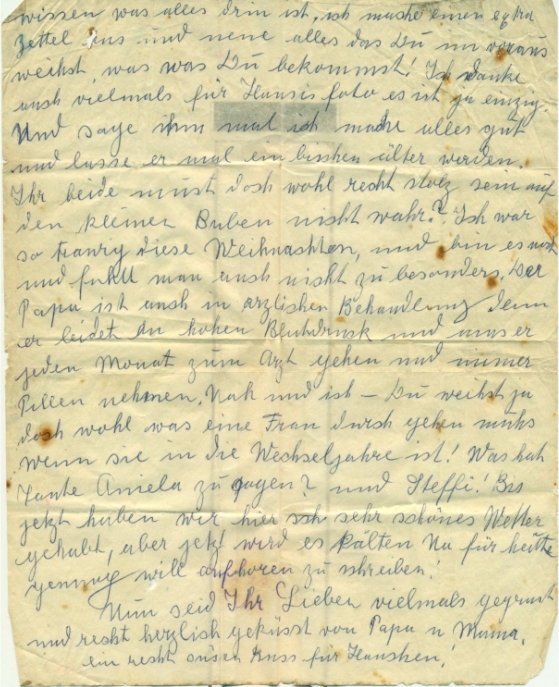 wissen was alles drin ist, ich mache einen extra
Zettel aus und nene alles das Du im voraus
weihst, was was Du bekommst! Ich danke
auch vielmals für Hansis foto es ist ja einzig.
Und sage ihm mal ich mache alles gut
und lasse er mal ein bisschen älter werden.
Ihr beide must doch wohl recht stolz sein auf
den kleinen Buben nicht wahr? Ich war
so traury diese Weihnachten, und bin es noch
und fuhlt man auch nicht zu besonders. Der
Papa ist auch in arzlichen Behandlung denn
er leidet an hohen Blutdruck und mus er
jeden Monat zum Arzt gehen und immer
Pillen nehmen. Nah und ich – Du weihst ja
doch wohl was eine Frau durch gehen muhs
wenn sie in die Wechseljahre ist! Was hat
Tante Aniela zu sagen? und Steffi! Bis
jetzt haben wir hier sch sehr schönes Wetter
gehabt, aber jetzt wird es kälten Na für heute
genug will aufhoren zu schreiben!
Nun seid Ihr Lieben vielmals gegrust
und recht herzlich geküsst von Papa u Mama.
ein recht süsen Kuss für Hanschen!